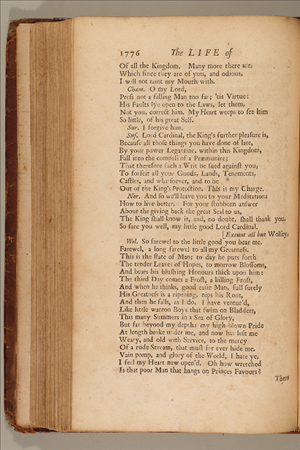 1776 The LIFE of
Of all the Kingdom. Many more there are,
Which since they are of you, and odious,
I will not taint my Mouth with.
Cham. O my Lord,
Press not a falling Man too far; 'tis Virtue:
His Faults lye open to the Laws, let them,
Not you, correct him. My Heart weeps to see him
So little, of his great self.
Sur. I forgive him.
Suf. Lord Cardinal, the King's further pleasure is,
Because all those things you have done of late,
By your power Legantine, within this Kingdom,
Fall into the compass of a Præmunire;
That therefore such a Writ be sued against you,
To forfeit all your Goods, Lands, Tenements,
Castles, and whatsoever, and to be
Out of the King's Protection. This is my Charge.
Nor. And so we'll leave you to your Meditations
How to live better. For your stubborn answer
About the giving back the great Seal to us,
The King shall know it, and, no doubt, shall thank you.
So fare you well, my little good Lord Cardinal.
[Exeunt all but Wolsey.
Wol. So farewel to the little good you bear me.
Farewel, a long farewel to all my Greatness.
This is the state of Man; to day he puts forth
The tender Leaves of Hopes, to morrow Blossoms,
And bears his blushing Honours thick upon him:
The third Day comes a Frost, a killing Frost,
And when he thinks, good easie Man, full surely
His Greatness is a ripening, nips his Root,
And then he falls, as I do. I have ventur'd,
Like little wanton Boys that swim on Bladders,
This many Summers in a Sea of Glory,
But far beyond my depth: my high-blown Pride
At length broke under me, and now has left me
Weary, and old with Service, to the mercy
Of a rude Stream, that must for ever hide me.
Vain pomp, and glory of the World, I hate ye,
I feel my Heart new open'd. Oh how wretched
Is that poor Man that hangs on Princes Favours?
Then